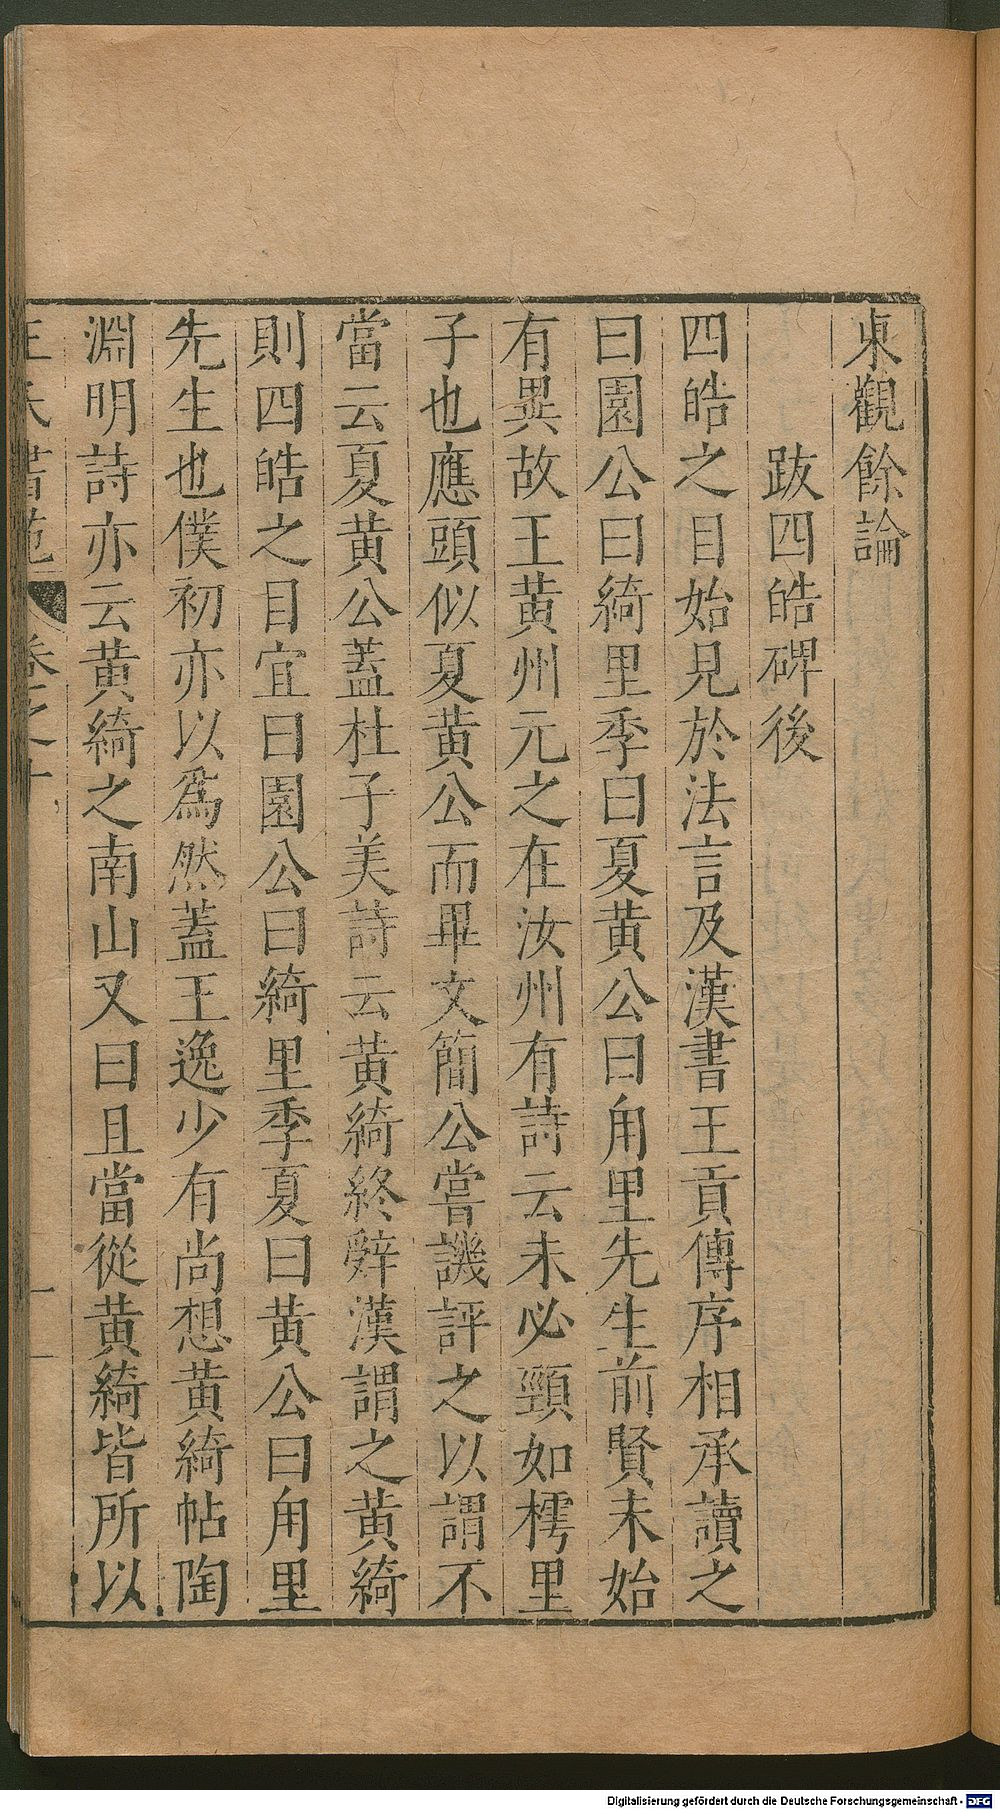 東觀餘論
跋四皓碑後
四皓之目始見於法言及漢書王貢傳序相承讀之
曰園公曰綺里季曰夏黄公曰甪里先生前賢未始
有異故王黄州元之在汝州有詩云未必頸如樗里
子也應頭似夏黄公而畢文簡公嘗譏評之以謂不
當云夏黄公蓋杜子美詩云黄綺終辭漢謂之黄綺
則四皓之目宜曰園公曰綺里季夏曰黄公曰甪里
先生也僕初亦以爲然蓋王逸少有尚想黄綺帖陶
淵明詩亦云黄綺之南山又曰且當從黄綺皆所以
王氏書苑 卷之十
Digitalisierung gefördert durch die Deutsche Forschungsgemeinschaft - DFG